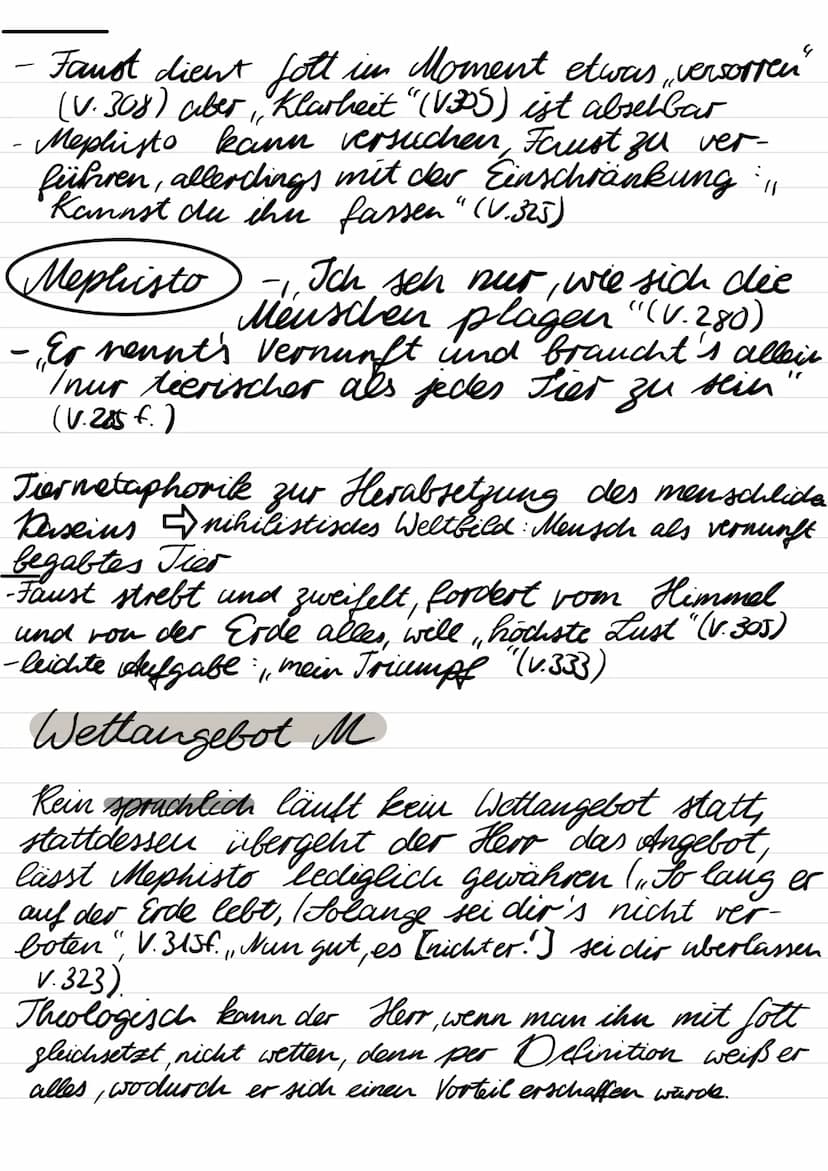 - Faust dient Gott im Moment etwas „verworren“
(V. 308) aber „Klarheit“ (V305) ist absehbar
- Mephisto kann versuchen, Faust zu ver-
führen, allerdings mit der Einschränkung: „
Kannst du ihn fassen“ (V.325)
Mephisto - „Ich seh nur, wie sich die
Menschen plagen“ (V.280)
- „Er nennt's Vernunft und braucht's allein
/nur tierischer als jedes Tier zu sein“
(V.285 f.)
Tiermetaphorik zur Herabsetzung des menschliche
Daseins ⇨ nihilistisches Weltbild: Mensch als vernunft
begabtes Tier
- Faust strebt und zweifelt, fordert vom Himmel
und von der Erde alles, will „höchste Lust“ (V.305)
- leichte Aufgabe: „mein Triumpf“ (V.333)
Wettangebot M
Rein sprachlich läuft kein Wettangebot statt,
stattdessen übergeht der Herr das Angebot,
lässt Mephisto lediglich gewähren („So lang er
auf der Erde lebt, /Solange sei dir's nicht ver-
boten“, V. 315f. „Nun gut, es [nicht er!] sei dir überlassen
V.323).
Theologisch kann der Herr, wenn man ihn mit Gott
gleichsetzt, nicht wetten, denn per Definition weiß er
alles, wodurch er sich einen Vorteil erschaffen würde.